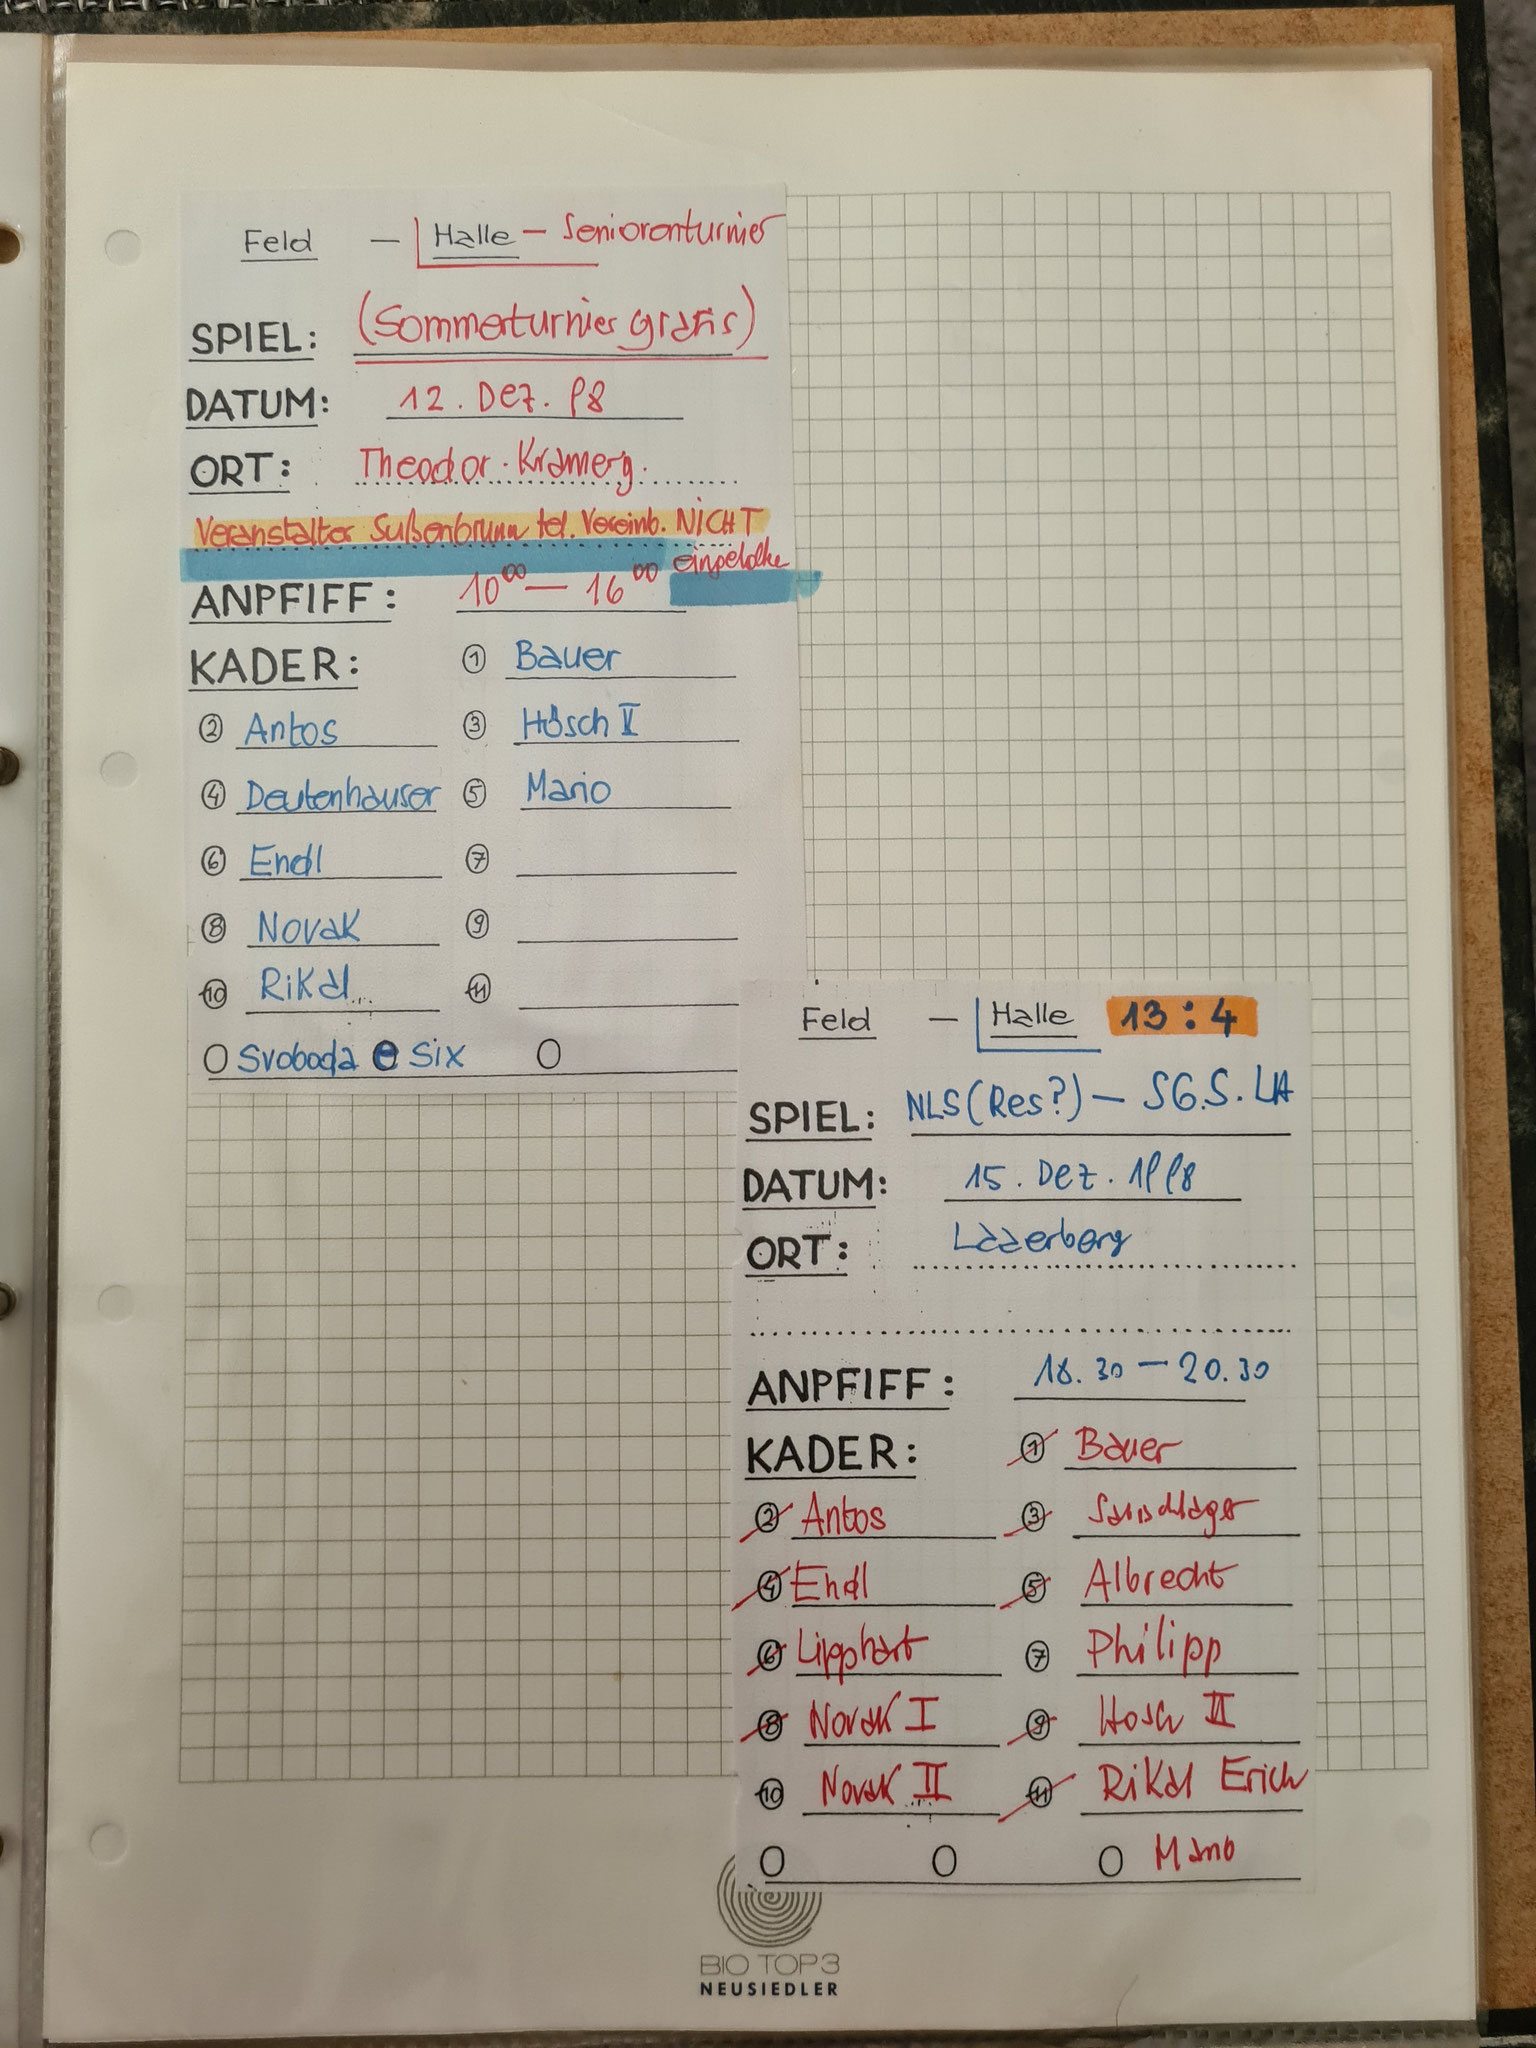 Feld — Halle — Seniorenturnier
SPIEL: (Sommerturnier gratis)
DATUM: 12. Dez. 98
ORT: Theodor-Kramerg.
Veranstalter Süßenbrunn tel. Vereinb. NICHT
eingehalten
ANPFIFF: 10⁰⁰ — 16⁰⁰
KADER: ① Bauer
② Antos ③ Hösch II
④ Deutenhauser ⑤ Mario
⑥ Endl ⑦
⑧ Novak ⑨
⑩ Rikal ⑪
O Svoboda O Six O
Feld — Halle 13:4
SPIEL: NLS (Res?) — SG.S. LA
DATUM: 15. Dez. 1998
ORT: Laaerberg
ANPFIFF: 18.30 — 20.30
KADER: ① Bauer
② Antos ③
④ Endl ⑤ Albrecht
⑥ Lipphart ⑦ Philipp
⑧ Novak I ⑨ Hösch II
⑩ Novak II ⑪ Rikal Erich
O O O Mario
BIO TOP 3
NEUSIEDLER